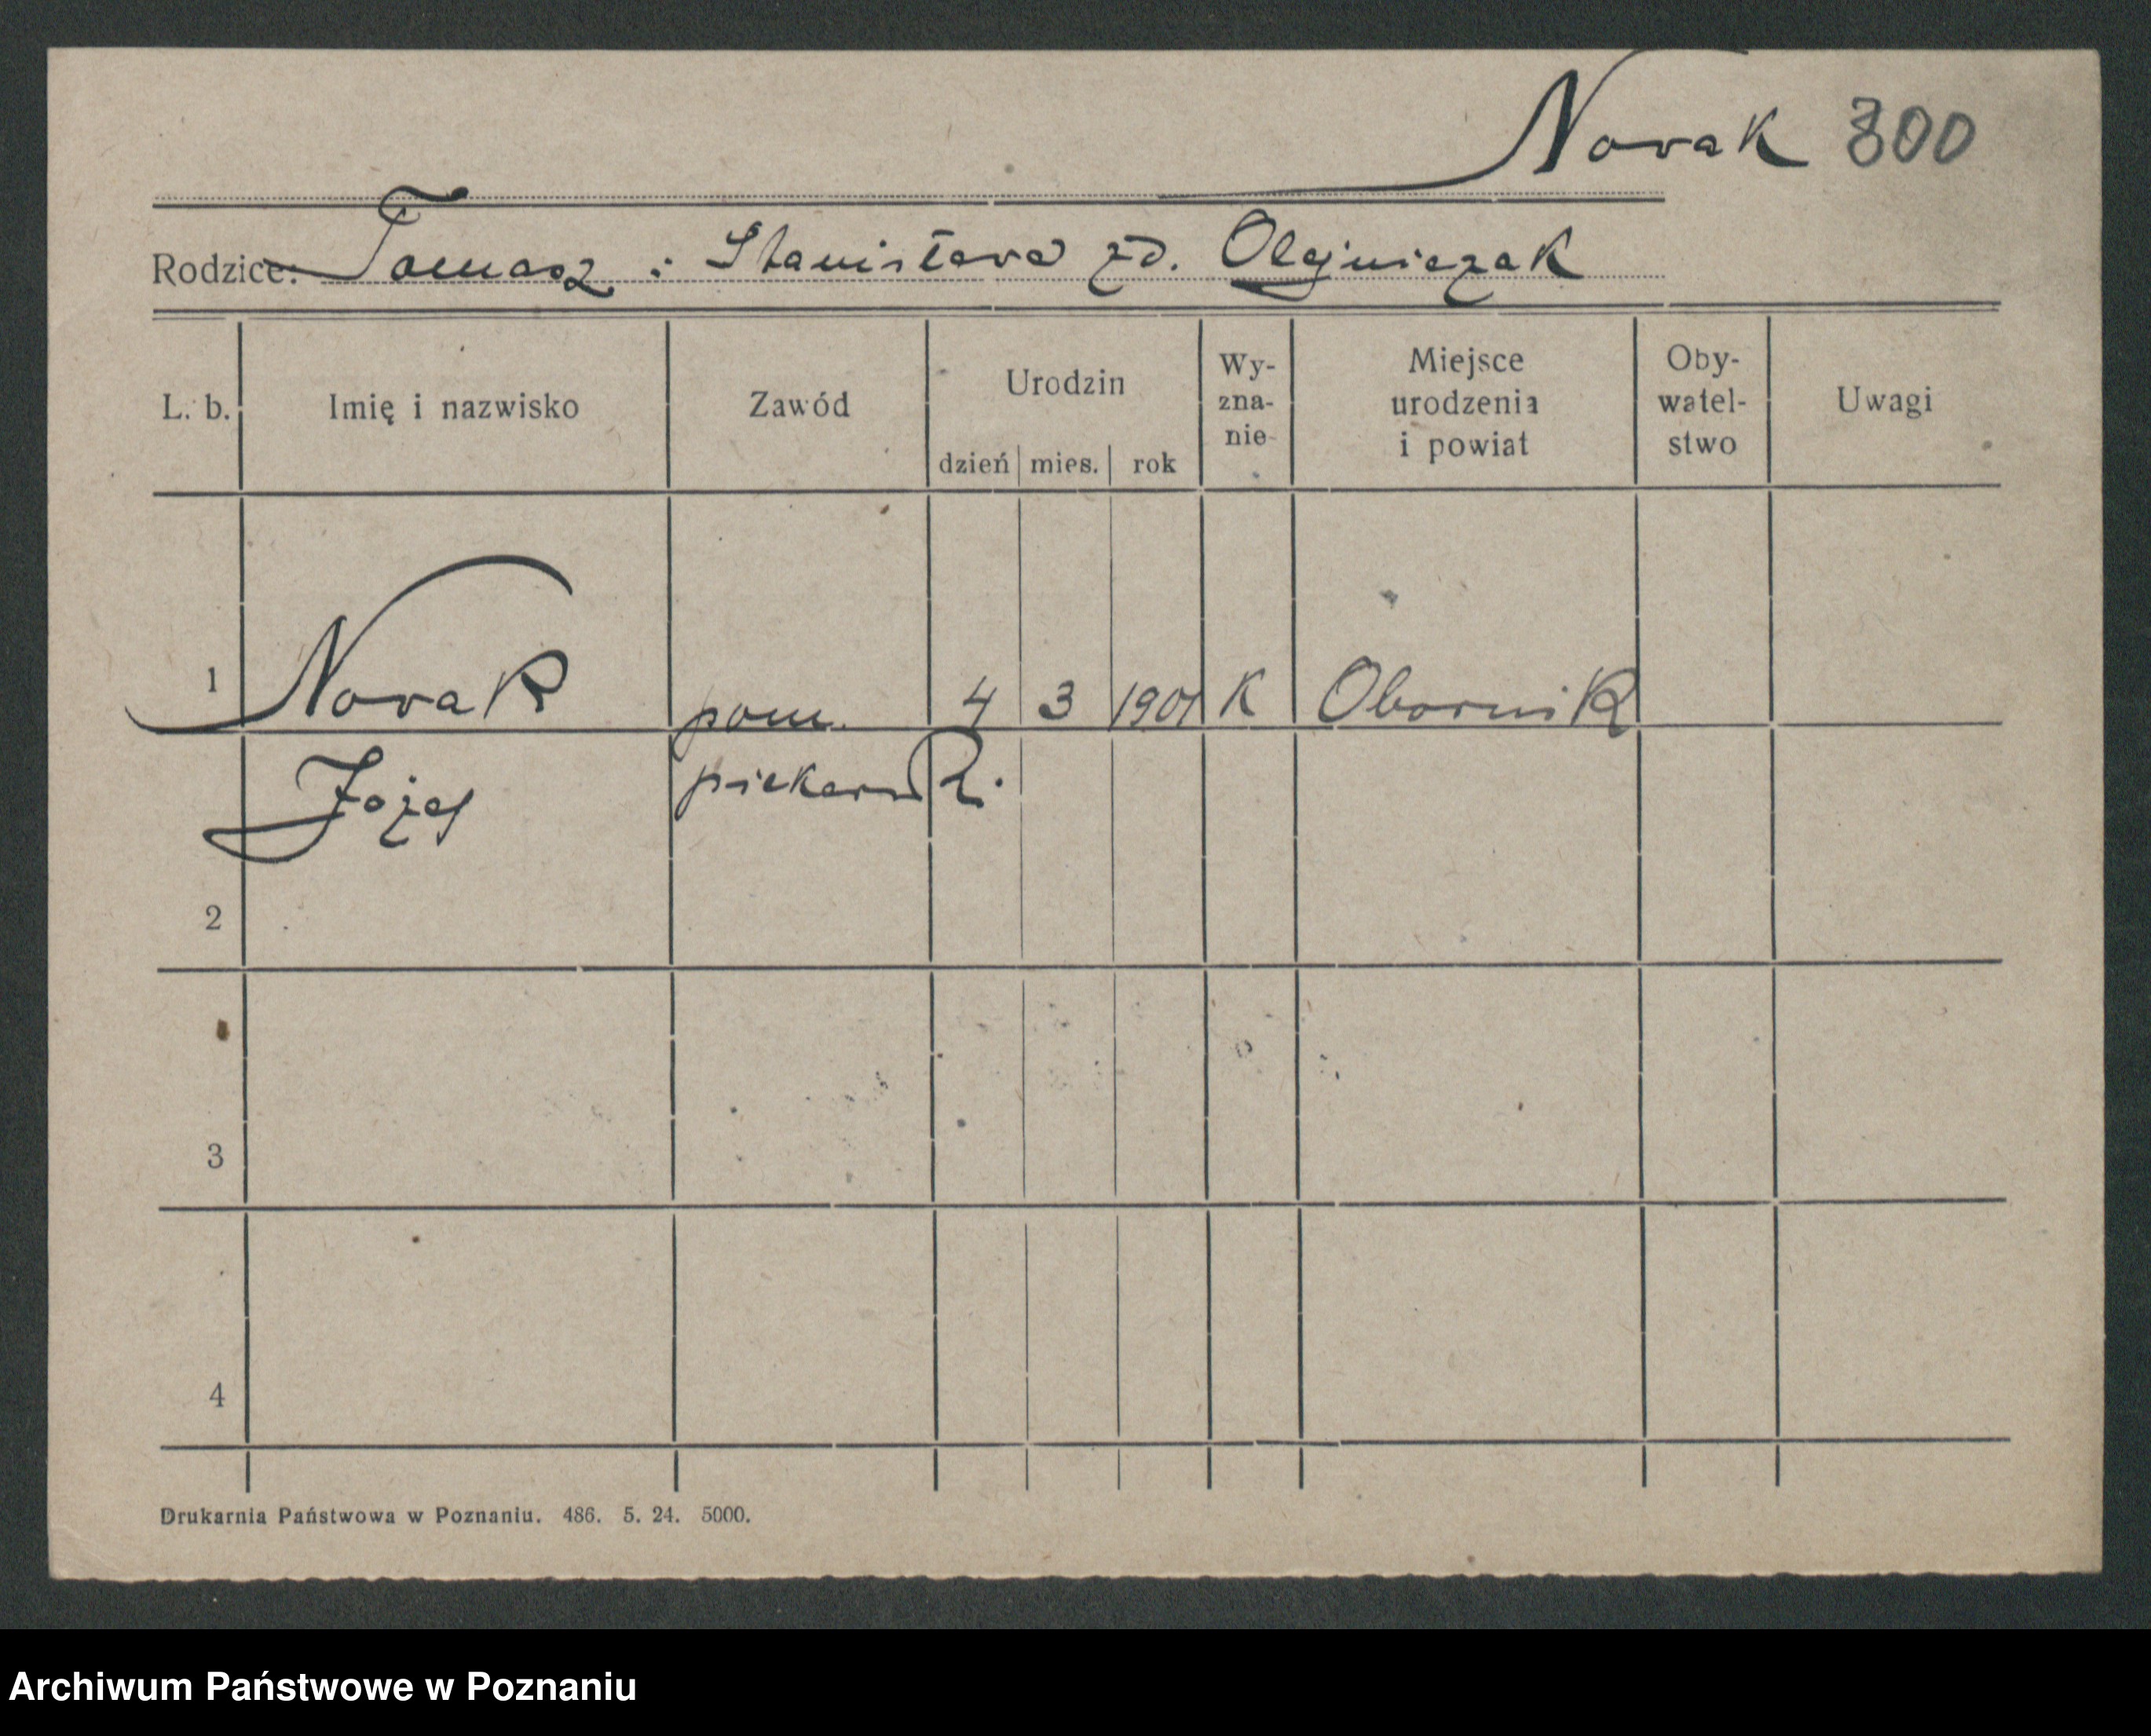 Nowak 300
Rodzice: Tomasz i Stanisława zd. Olejniczak
L. b. Imię i nazwisko Zawód Urodzin dzień mies. rok Wy-zna-nie Miejsce urodzenia i powiat Oby-watel-stwo Uwagi
1 Nowak pom. 4 3 1901 K Obornik
Józef piekarsk.
2
3
4
Drukarnia Państwowa w Poznaniu. 486. 5. 24. 5000.
Archiwum Państwowe w Poznaniu